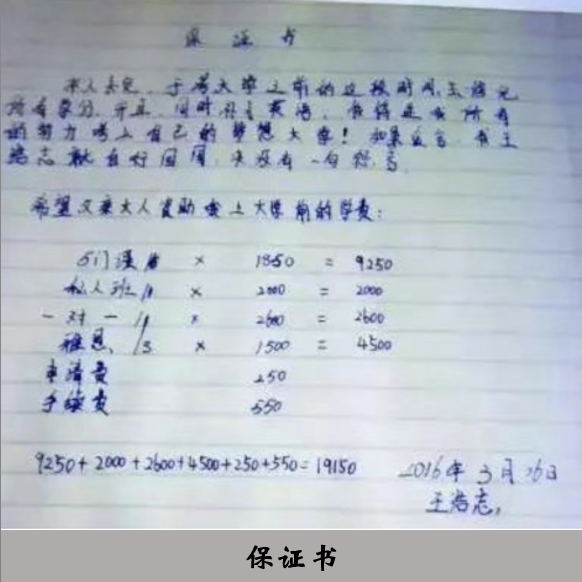 保证书
本人承诺,于考大学之前的这段时间,
所有学分,并且,同时补习英语,
的努力考上自己的梦想大学!如果食言,我王
浩志就自行回国,决没有一句怨言
希望父亲大人资助我上大学前的学费:
5门课 × 1850 = 9250
私人班/1 × 2000 = 2000
一对一/1 × 2600 = 2600
雅思/3 × 1500 = 4500
申请费 250
手续费 550
9250+2000+2600+4500+250+550=19150
2016年3月26日
王浩志,
保证书